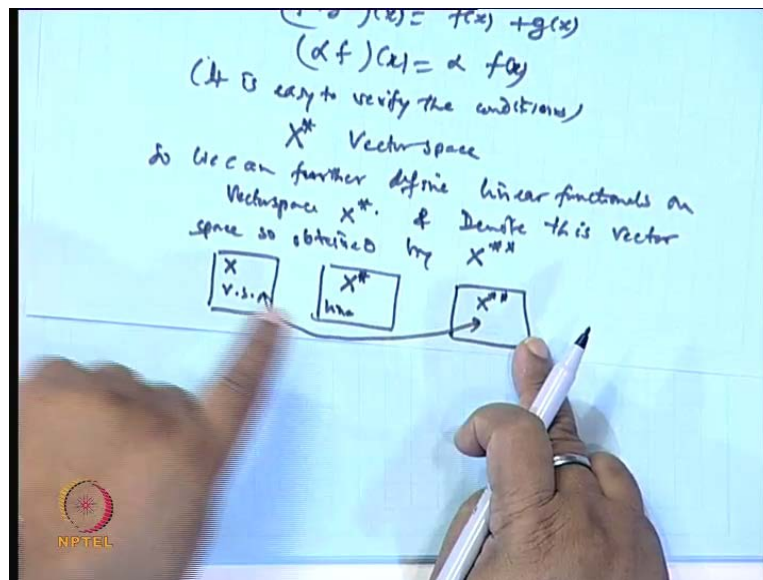 )(x) = f(x) + g(x)
(αf)(x) = α f(x)
(It is easy to verify the conditions)
X* Vector space
So we can further define linear functionals on
Vector space X*. & Denote this vector
space so obtained by X**
X X* X**
V.S.
NPTEL